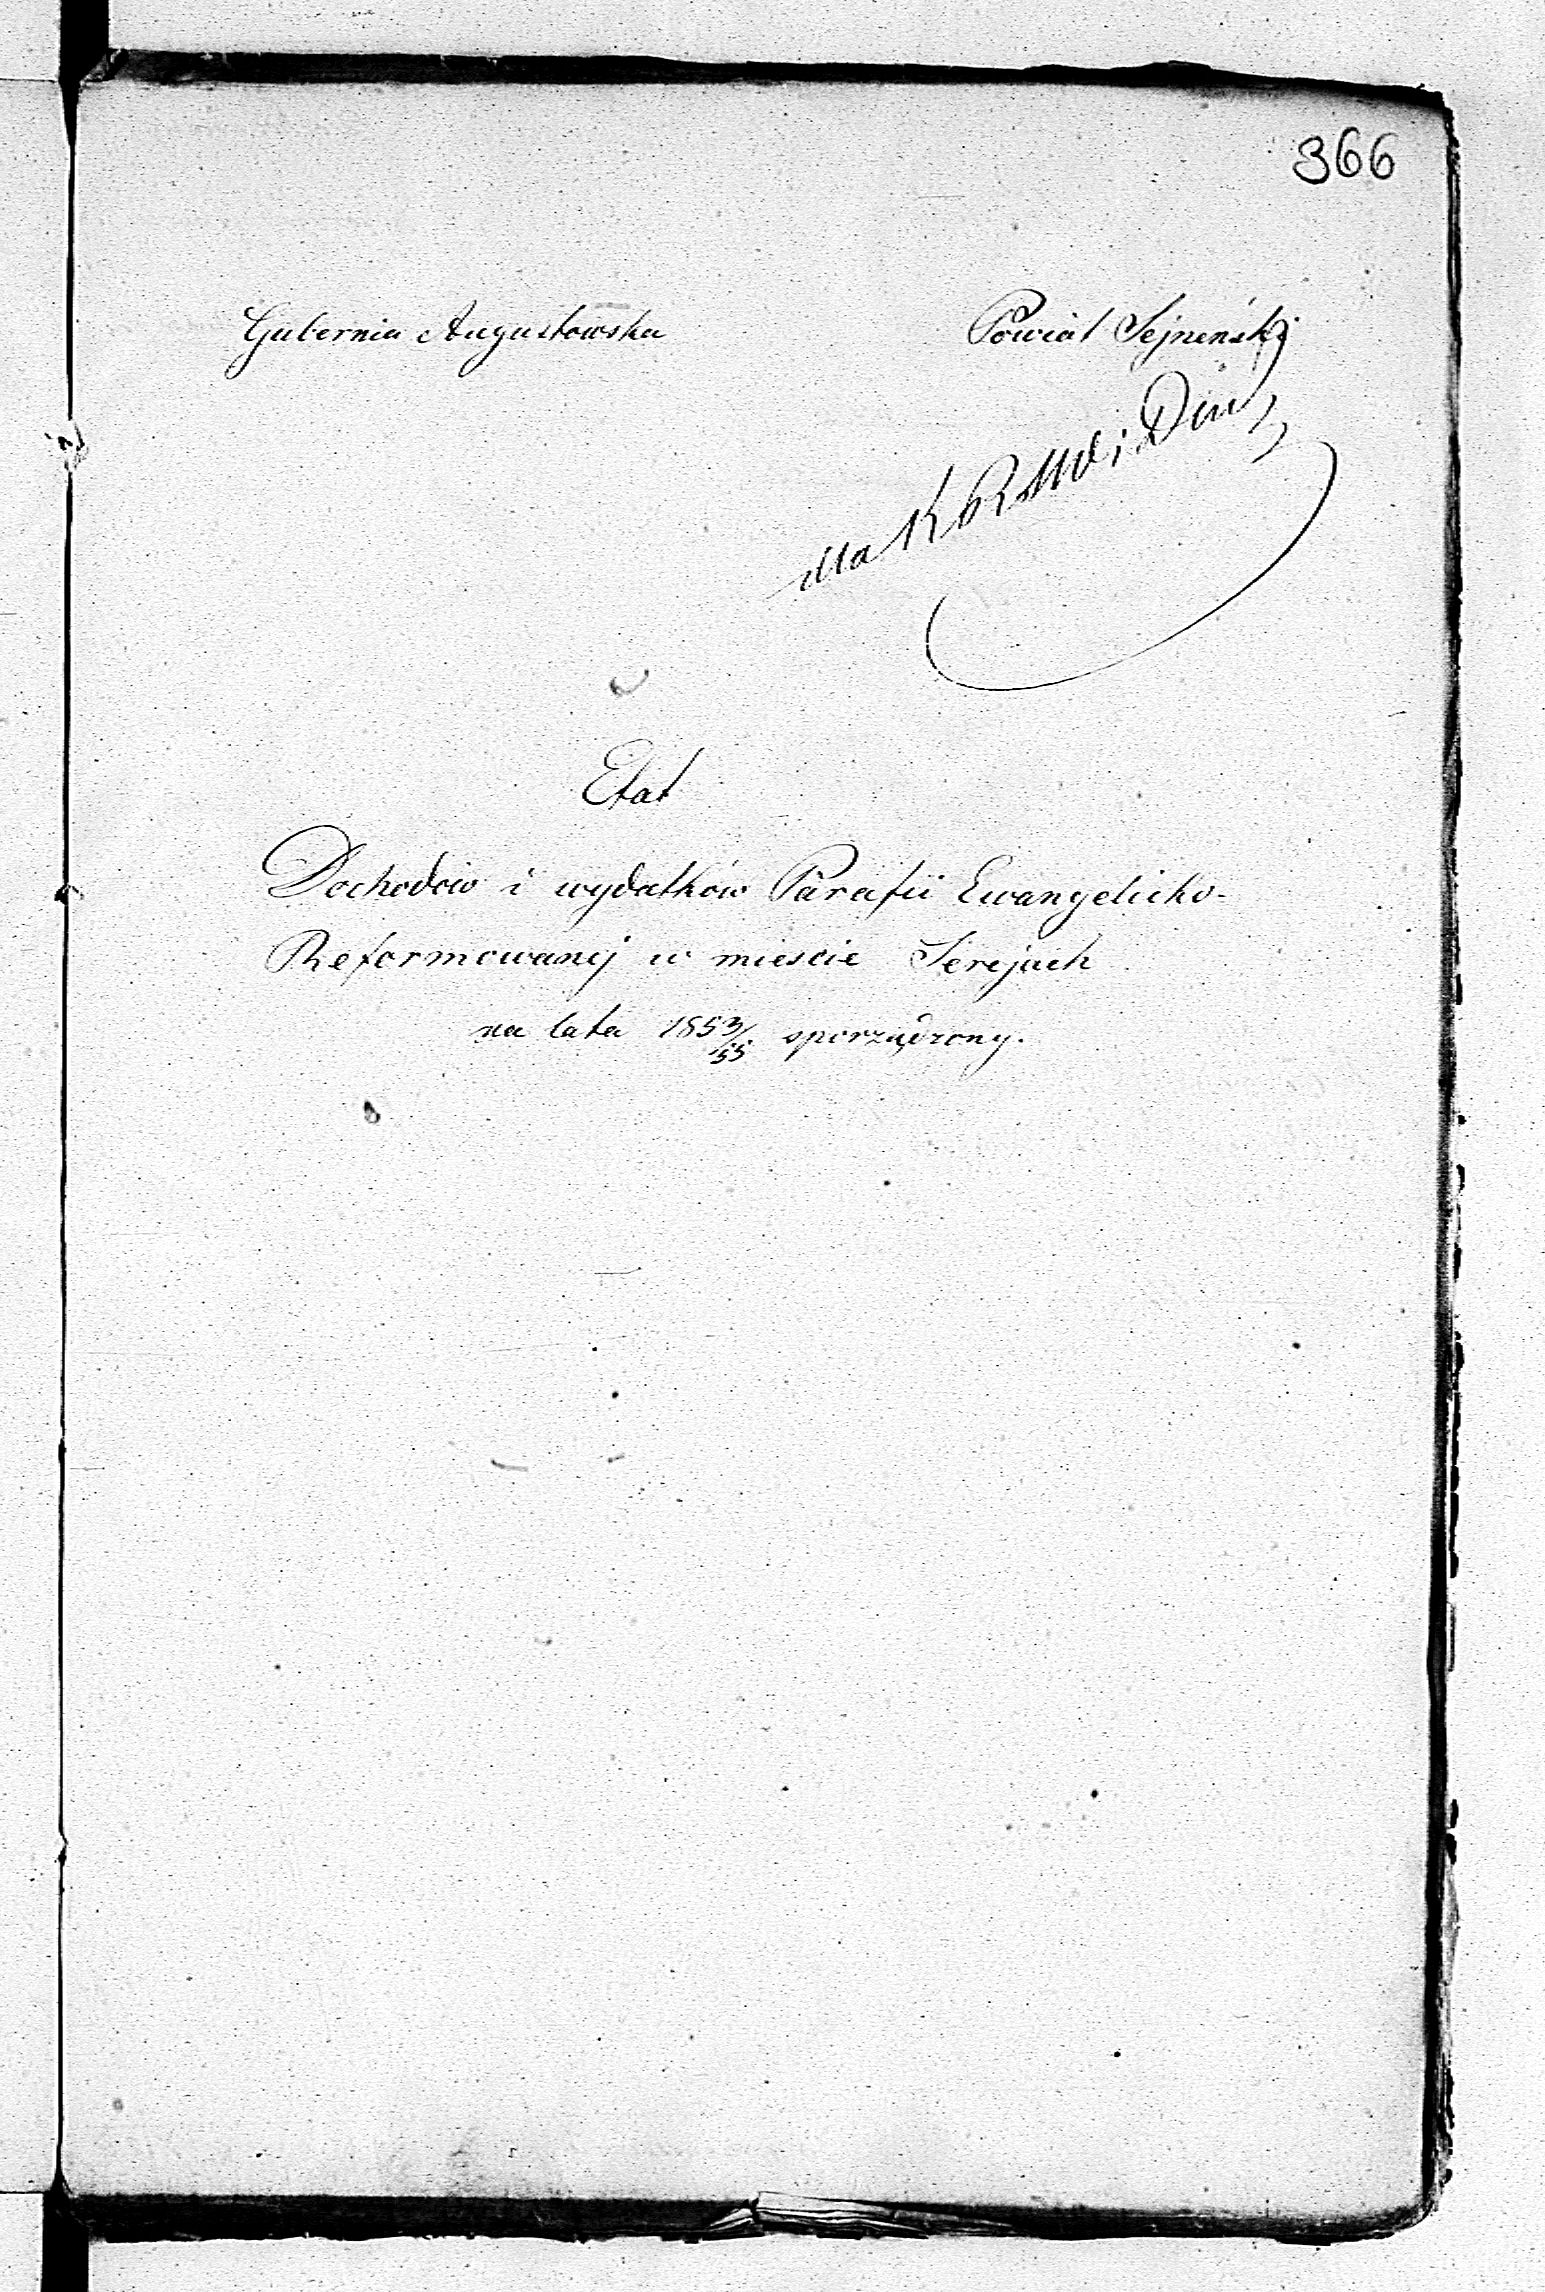 366
Gubernia Augustowska Powiat Sejneński
dla K R S W i D
Etat
Dochodów i wydatków Parafii Ewangelicko-
Reformowanej w mieście Serejach
na lata 1853/55 sporządzony.